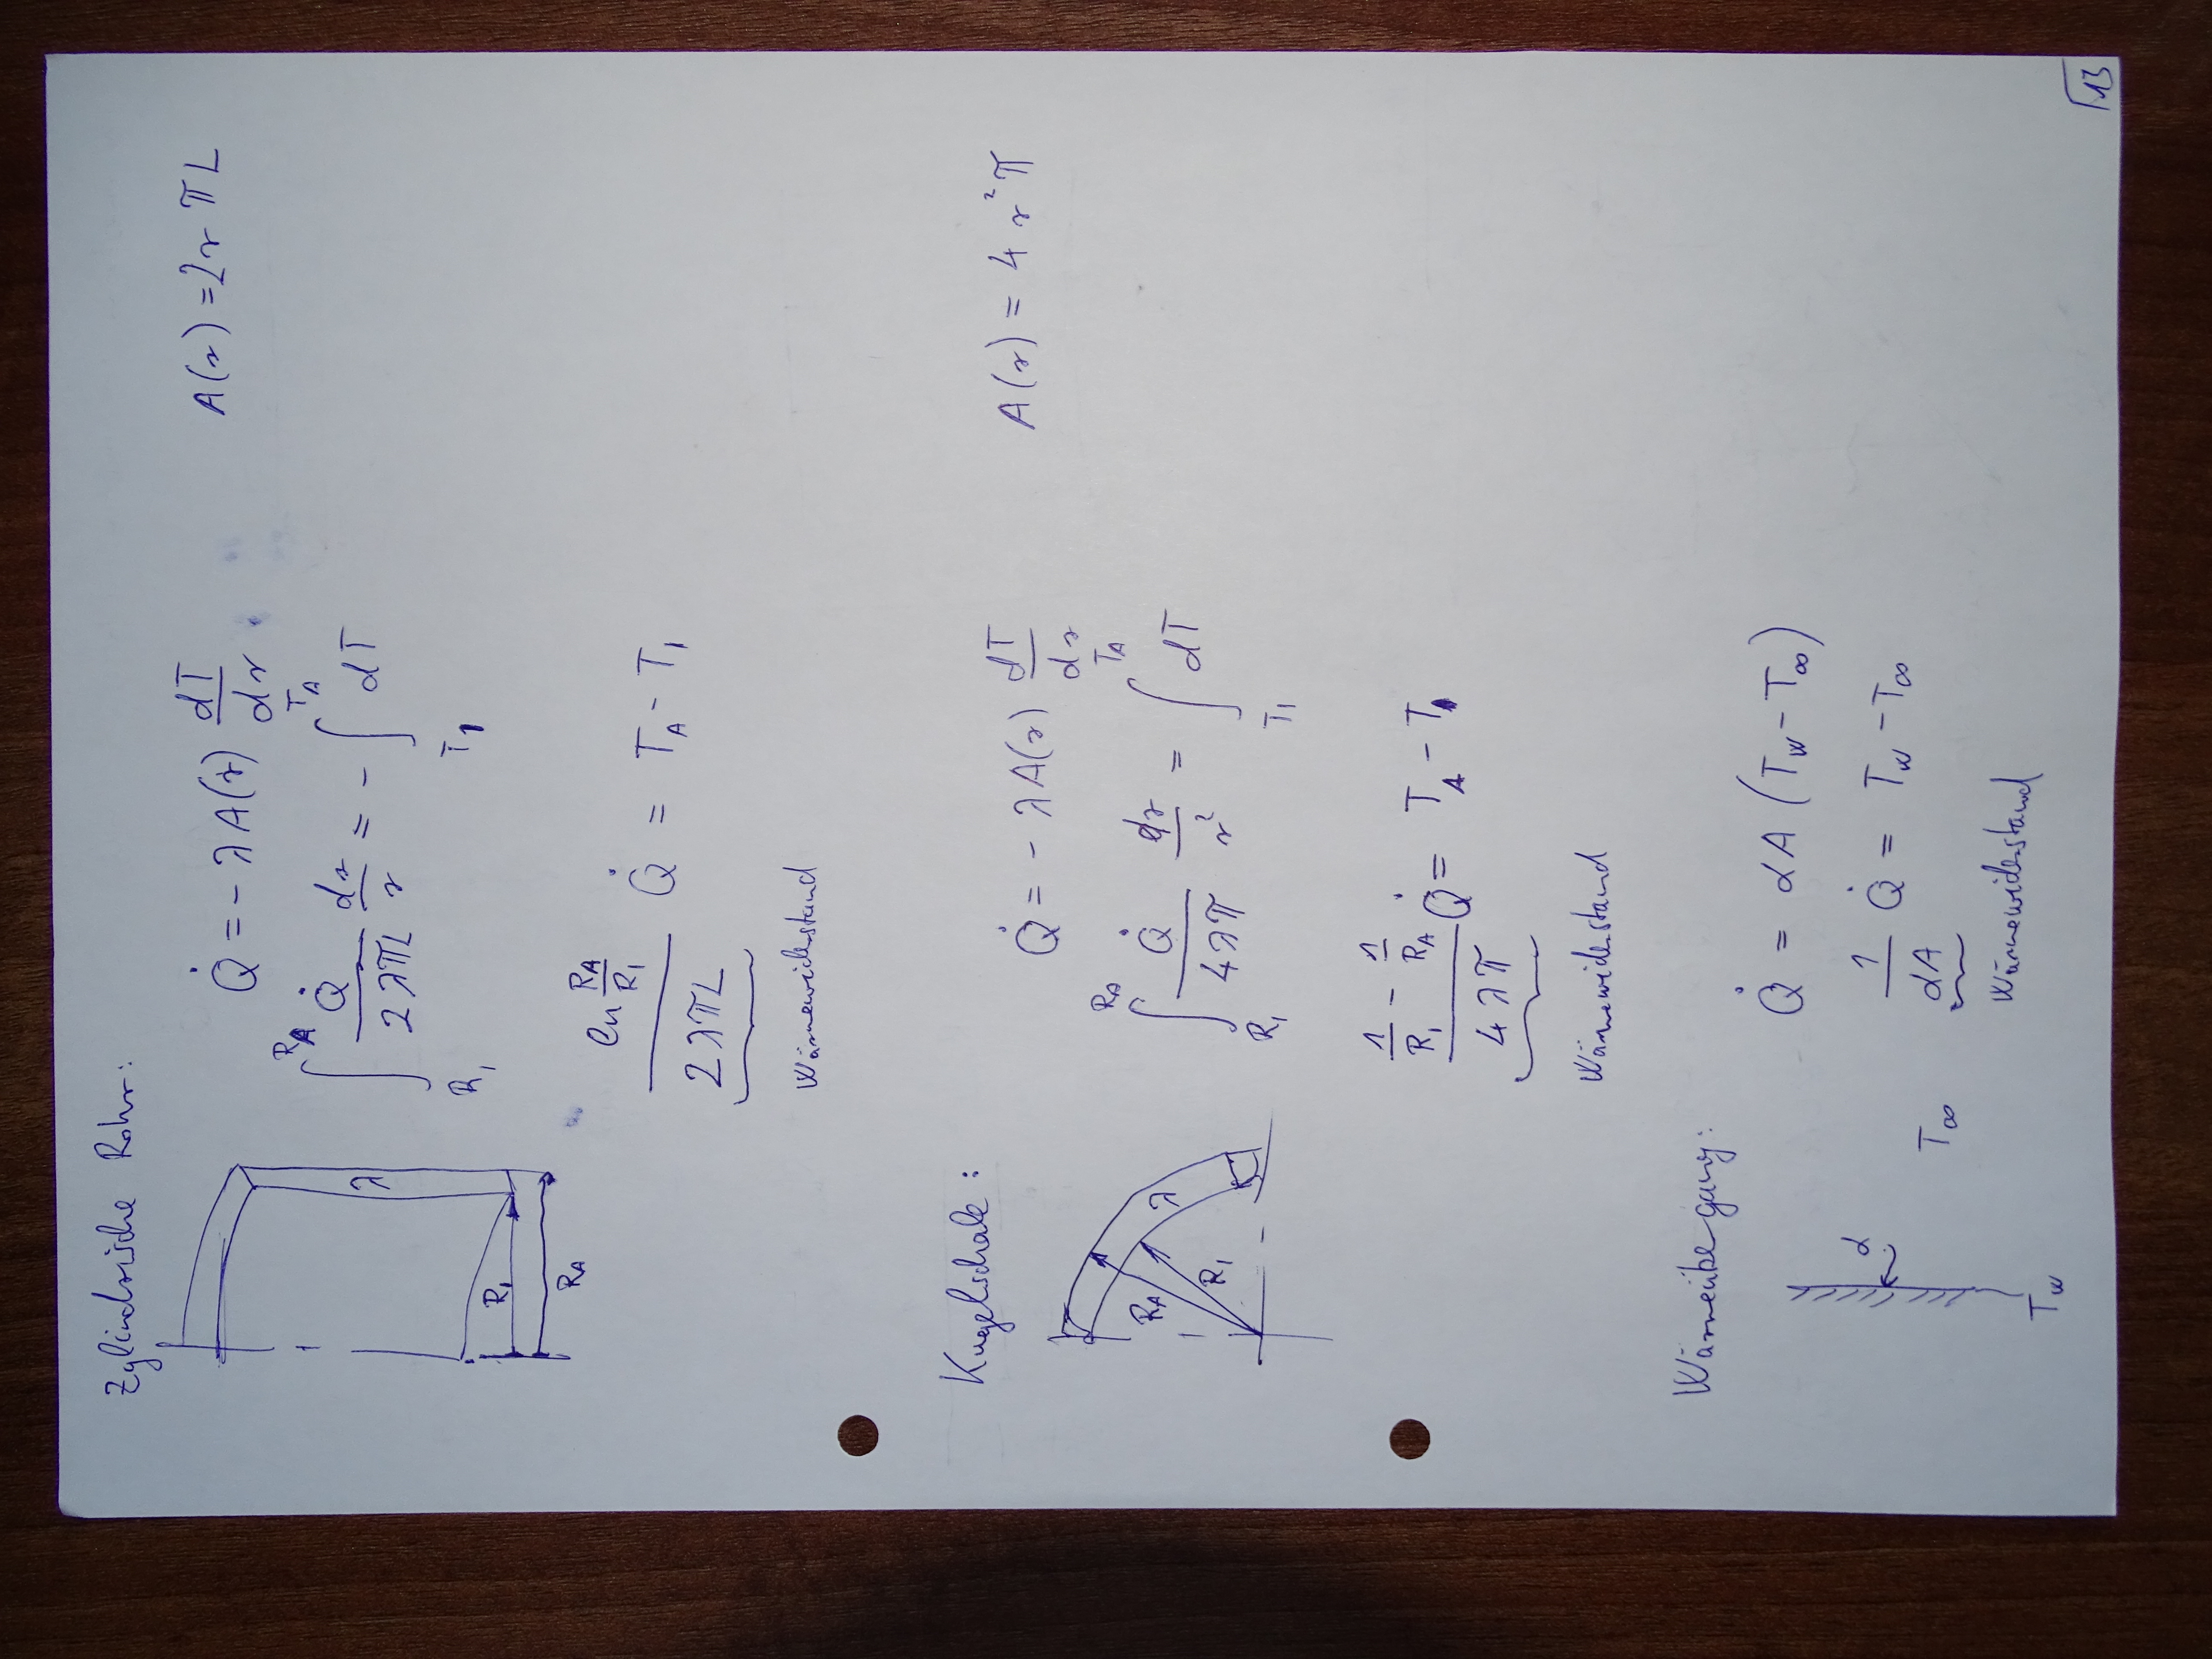 Zylindrische Rohr:
λ
R₁
R_A
Q̇ = - λ A(r) dT/dr
A(r) = 2 r π L
∫_{R₁}^{R_A} Q̇/(2 λ π L) dr/r = - ∫_{T₁}^{T_A} dT
(ln R_A/R₁)/(2 λ π L) Q̇ = T_A - T₁
Wärmewiderstand
Kugelschale:
λ
R_A
R₁
Q̇ = - λ A(r) dT/dr
A(r) = 4 r² π
∫_{R₁}^{R_A} Q̇/(4 λ π) dr/r² = ∫_{T₁}^{T_A} dT
(1/R₁ - 1/R_A)/(4 λ π) Q̇ = T_A - T₁
Wärmewiderstand
Wärmeübergang:
α
T∞
T_W
Q̇ = α A (T_W - T∞)
1/(α A) Q̇ = T_W - T∞
Wärmewiderstand
13